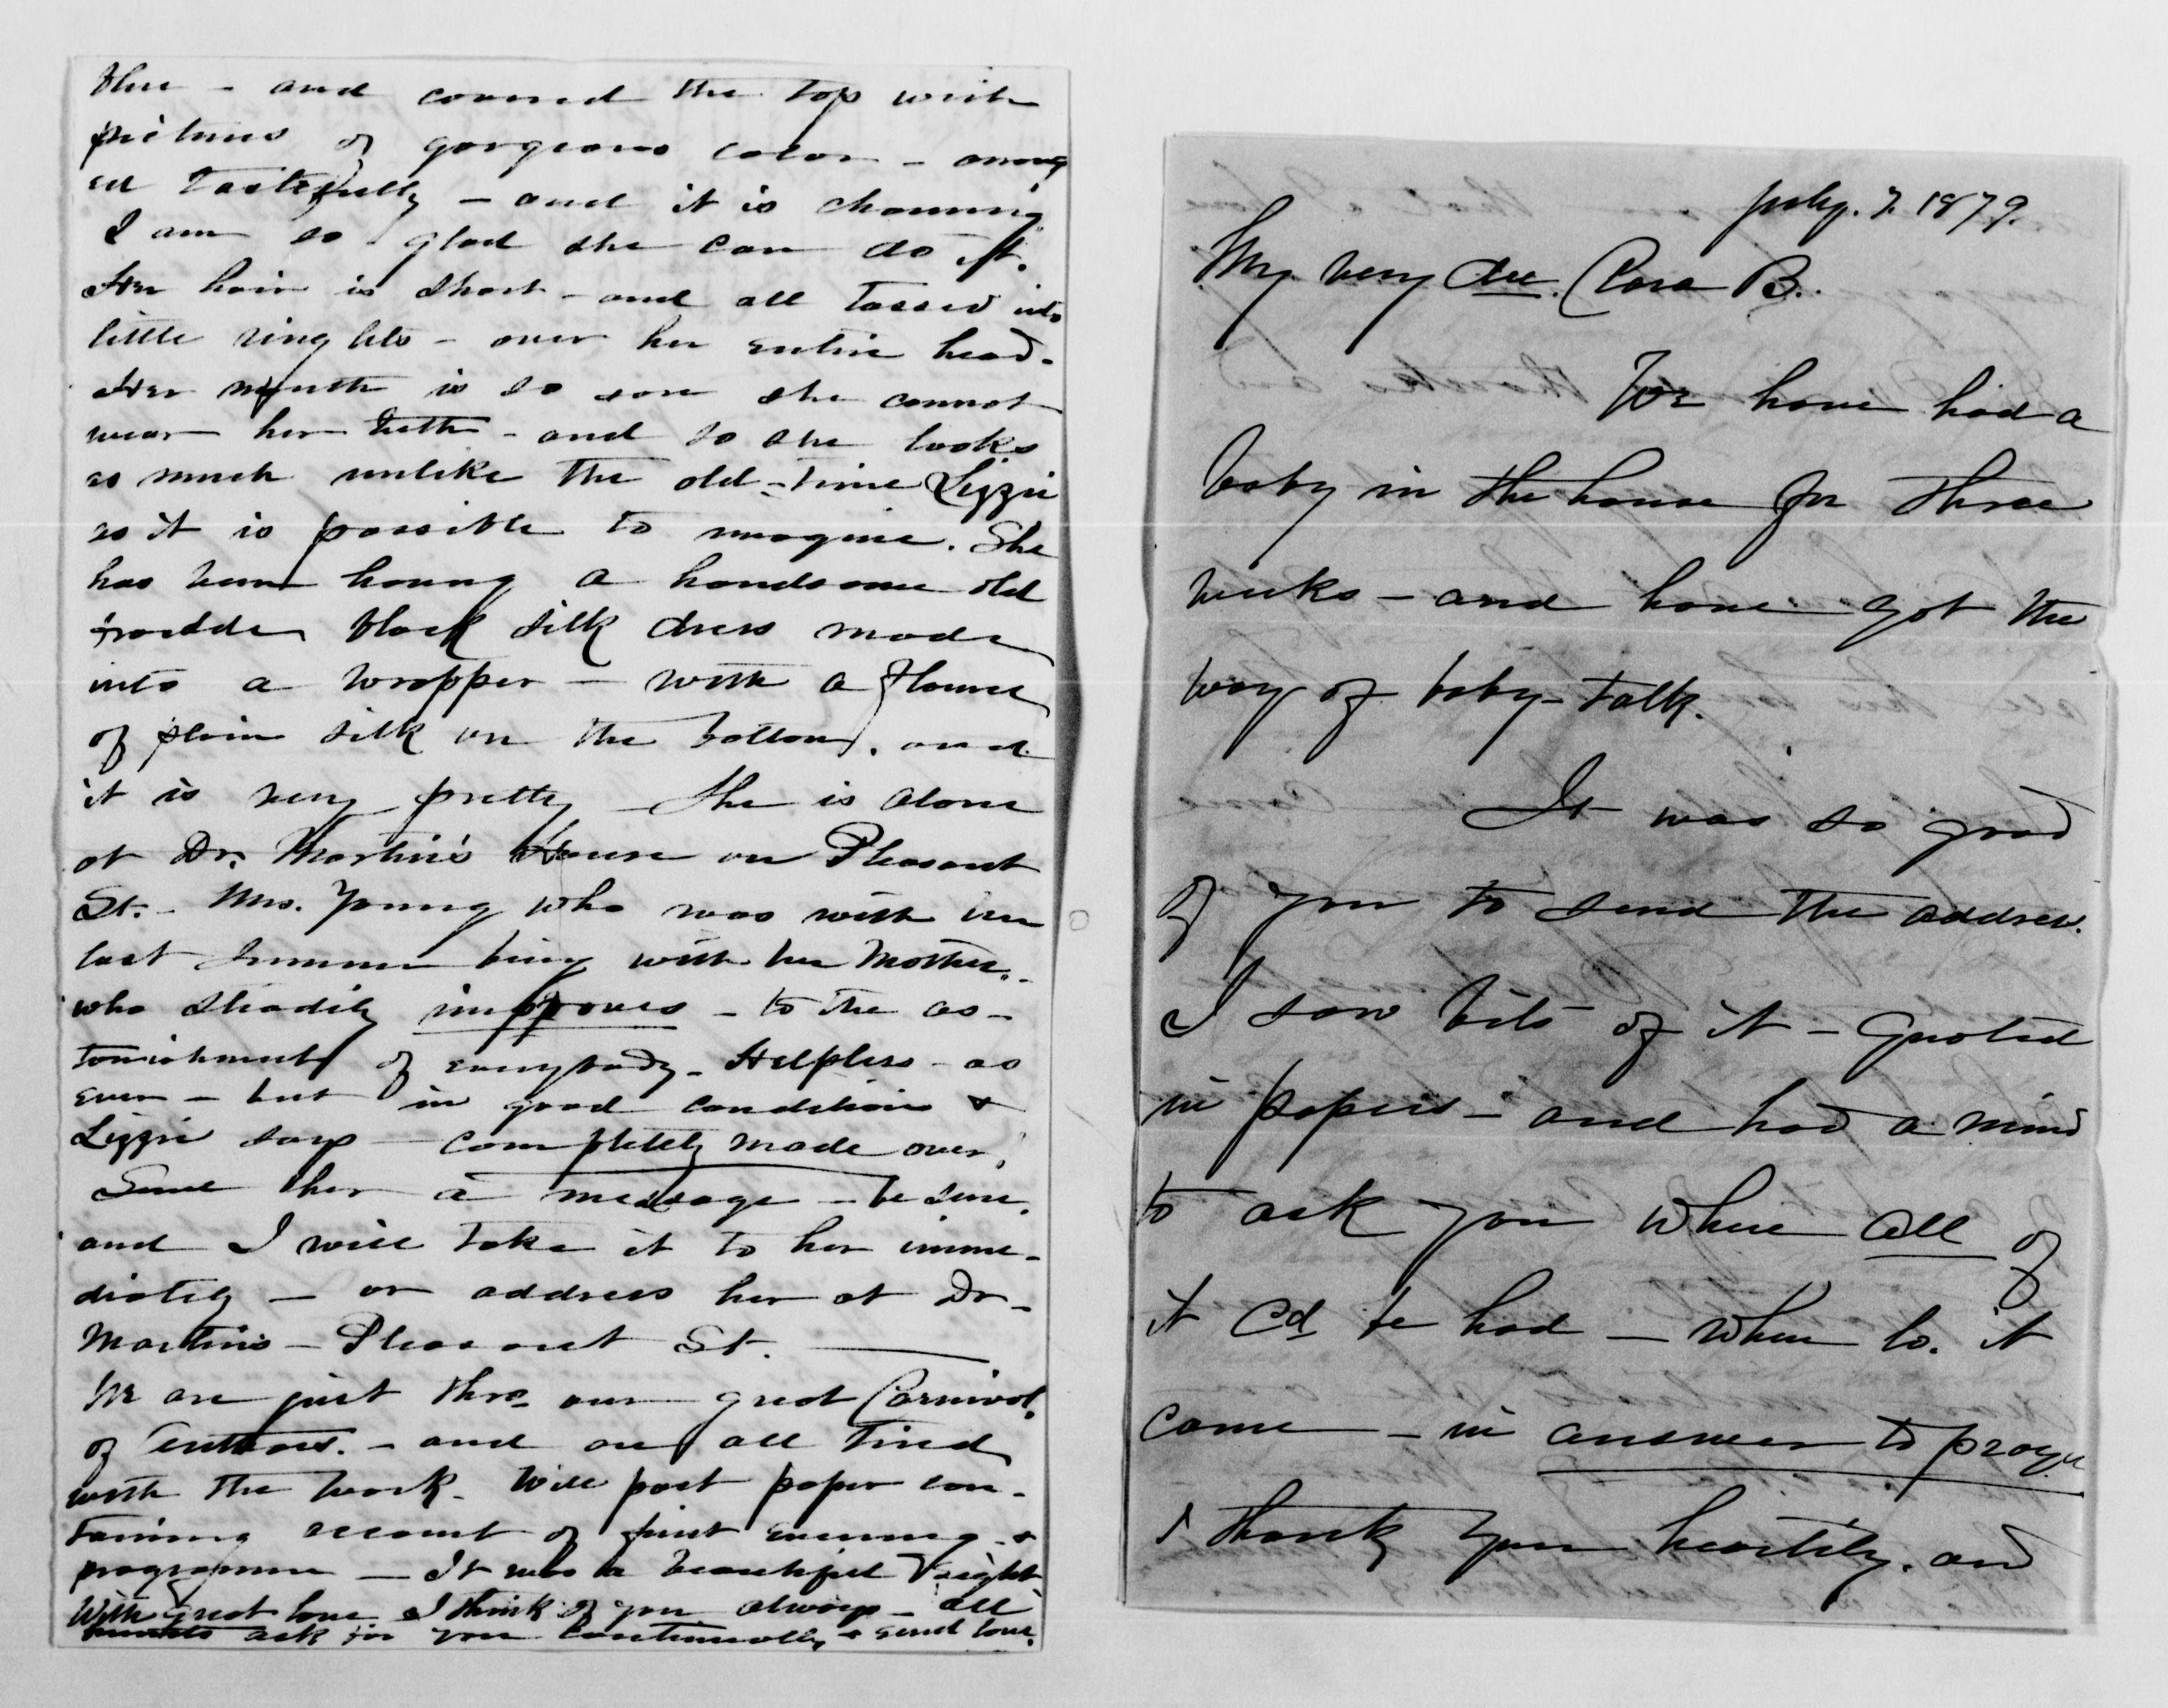 blue - and covered the top with
pictures of gorgeous color - arrang
ed tastefully - and it is charming
I am so glad she can do it.
Her hair is short - and all tossed into
little ringlets - over her entire head -
Her mouth is so sore she cannot
wear her teeth - and so she looks
as much unlike the old-time Lizzie
as it is possible to imagine. She
has been having a handsome old
black silk dress made
into a wrapper - with a flounce
of plain silk on the bottom, and
it is very pretty - She is alone
at Dr. Martin's House on Pleasant
St. - Mrs. Young who was with her
last summer being with her Mother -
who steadily improves - to the as-
tonishment of everybody - Helpless - as
ever - but in good condition &
Lizzie says - completely made over.
Send her a message - be sure,
and I will take it to her imme-
diately - or address her at Dr -
Martin's - Pleasant St.
We are just thro our great Carnival
of Authors. - and are all tired
with the work - Will post paper con-
taining account of first evening - &
programme - It was a beautiful sight
With great love I think of you always - all
ask for you continually & send love.
July. 7. 1879.
My very dee. Clara B..
We have had a
baby in the house for three
weeks - and have got the
way of baby-talk.
It was so good
of you to send the address.
I saw bits of it - quoted
in papers - and had a mind
to ask you where all of
it cd be had - when lo. it
came - in answer to prayer
I thank you heartily. and